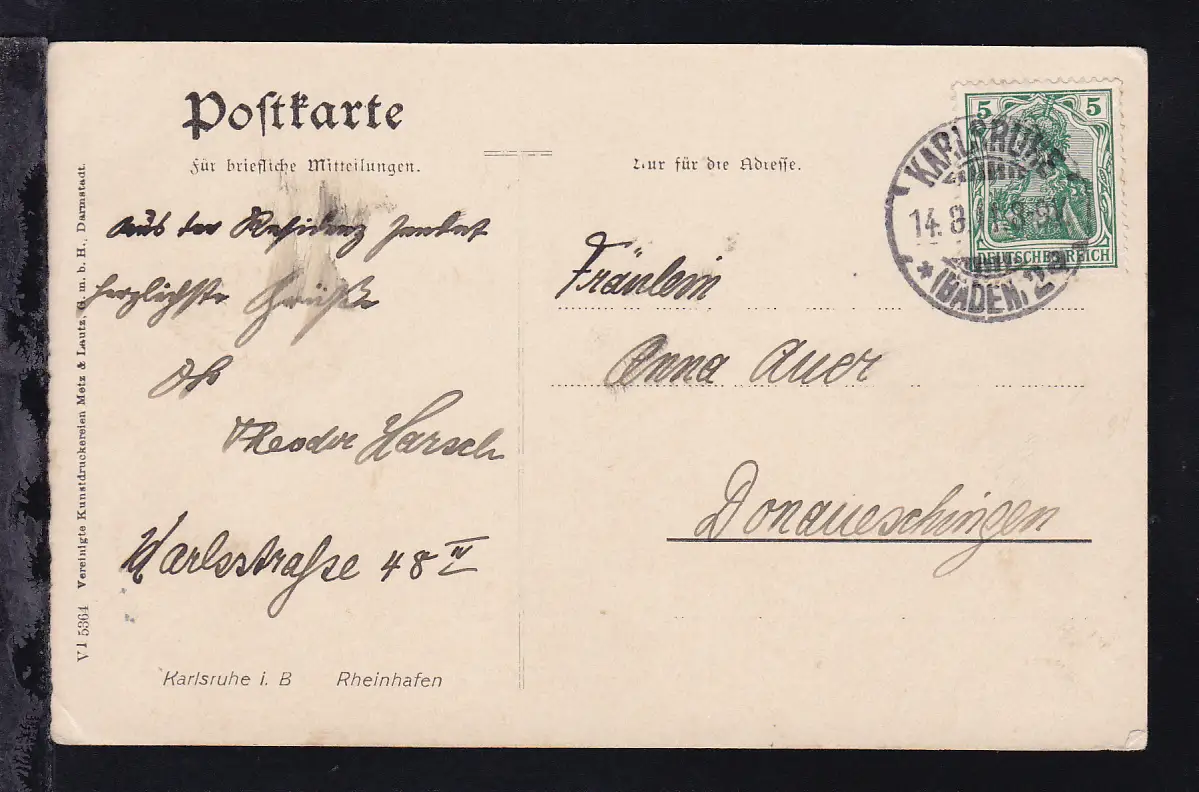 Postkarte
Für briefliche Mitteilungen.
Nur für die Adresse.
Aus der Residenz sendet
herzlichste Grüße
Theodor Harsch
Karlsstraße 48 IV
Karlsruhe i. B Rheinhafen
V1 5364 Vereinigte Kunstdruckereien Metz & Lautz, G. m. b. H., Darmstadt.
5 5
DEUTSCHES REICH
KARLSRUHE
14.8. 8-9
* (BADEN.) 2a
Fräulein
Anna Auer
Donaueschingen